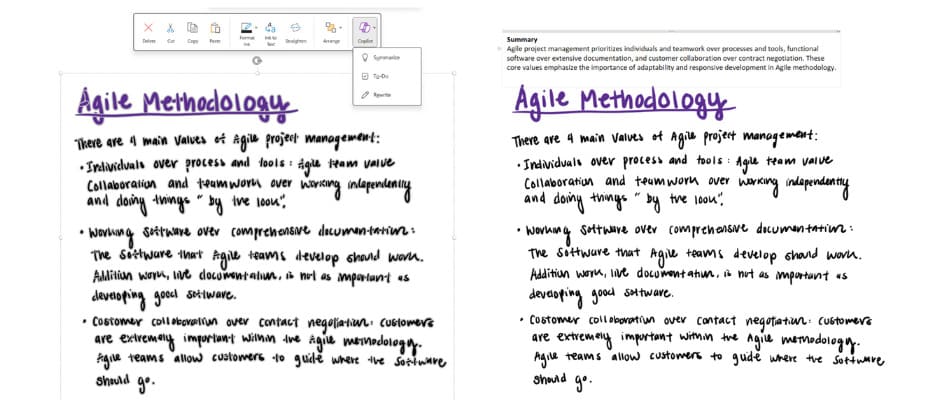 Delete Cut Copy Paste Format Ink Ink to Text Straighten Arrange Copilot
Summarize
To-Do
Rewrite
Agile Methodology
There are 4 main values of Agile project management:
• Individuals over process and tools: Agile team value
Collaboration and teamwork over working independently
and doing things "by the book".
• Working Software over comprehensive documentation:
The Software that Agile teams develop should work.
Addition work, like documentation, is not as important as
developing good software.
• Costomer collaboration over contact negotiation: customers
are extremely important within the Agile methodology.
Agile teams allow customers to guide where the Software
should go.
Summary
Agile project management prioritizes individuals and teamwork over processes and tools, functional
software over extensive documentation, and customer collaboration over contract negotiation. These
core values emphasize the importance of adaptability and responsive development in Agile methodology.
Agile Methodology
There are 4 main values of Agile project management:
• Individuals over process and tools: Agile team value
Collaboration and teamwork over working independently
and doing things "by the book".
• Working Software over comprehensive documentation:
The Software that Agile teams develop should work.
Addition work, like documentation, is not as important as
developing good software.
• Costomer collaboration over contact negotiation: customers
are extremely important within the Agile methodology.
Agile teams allow customers to guide where the Software
should go.